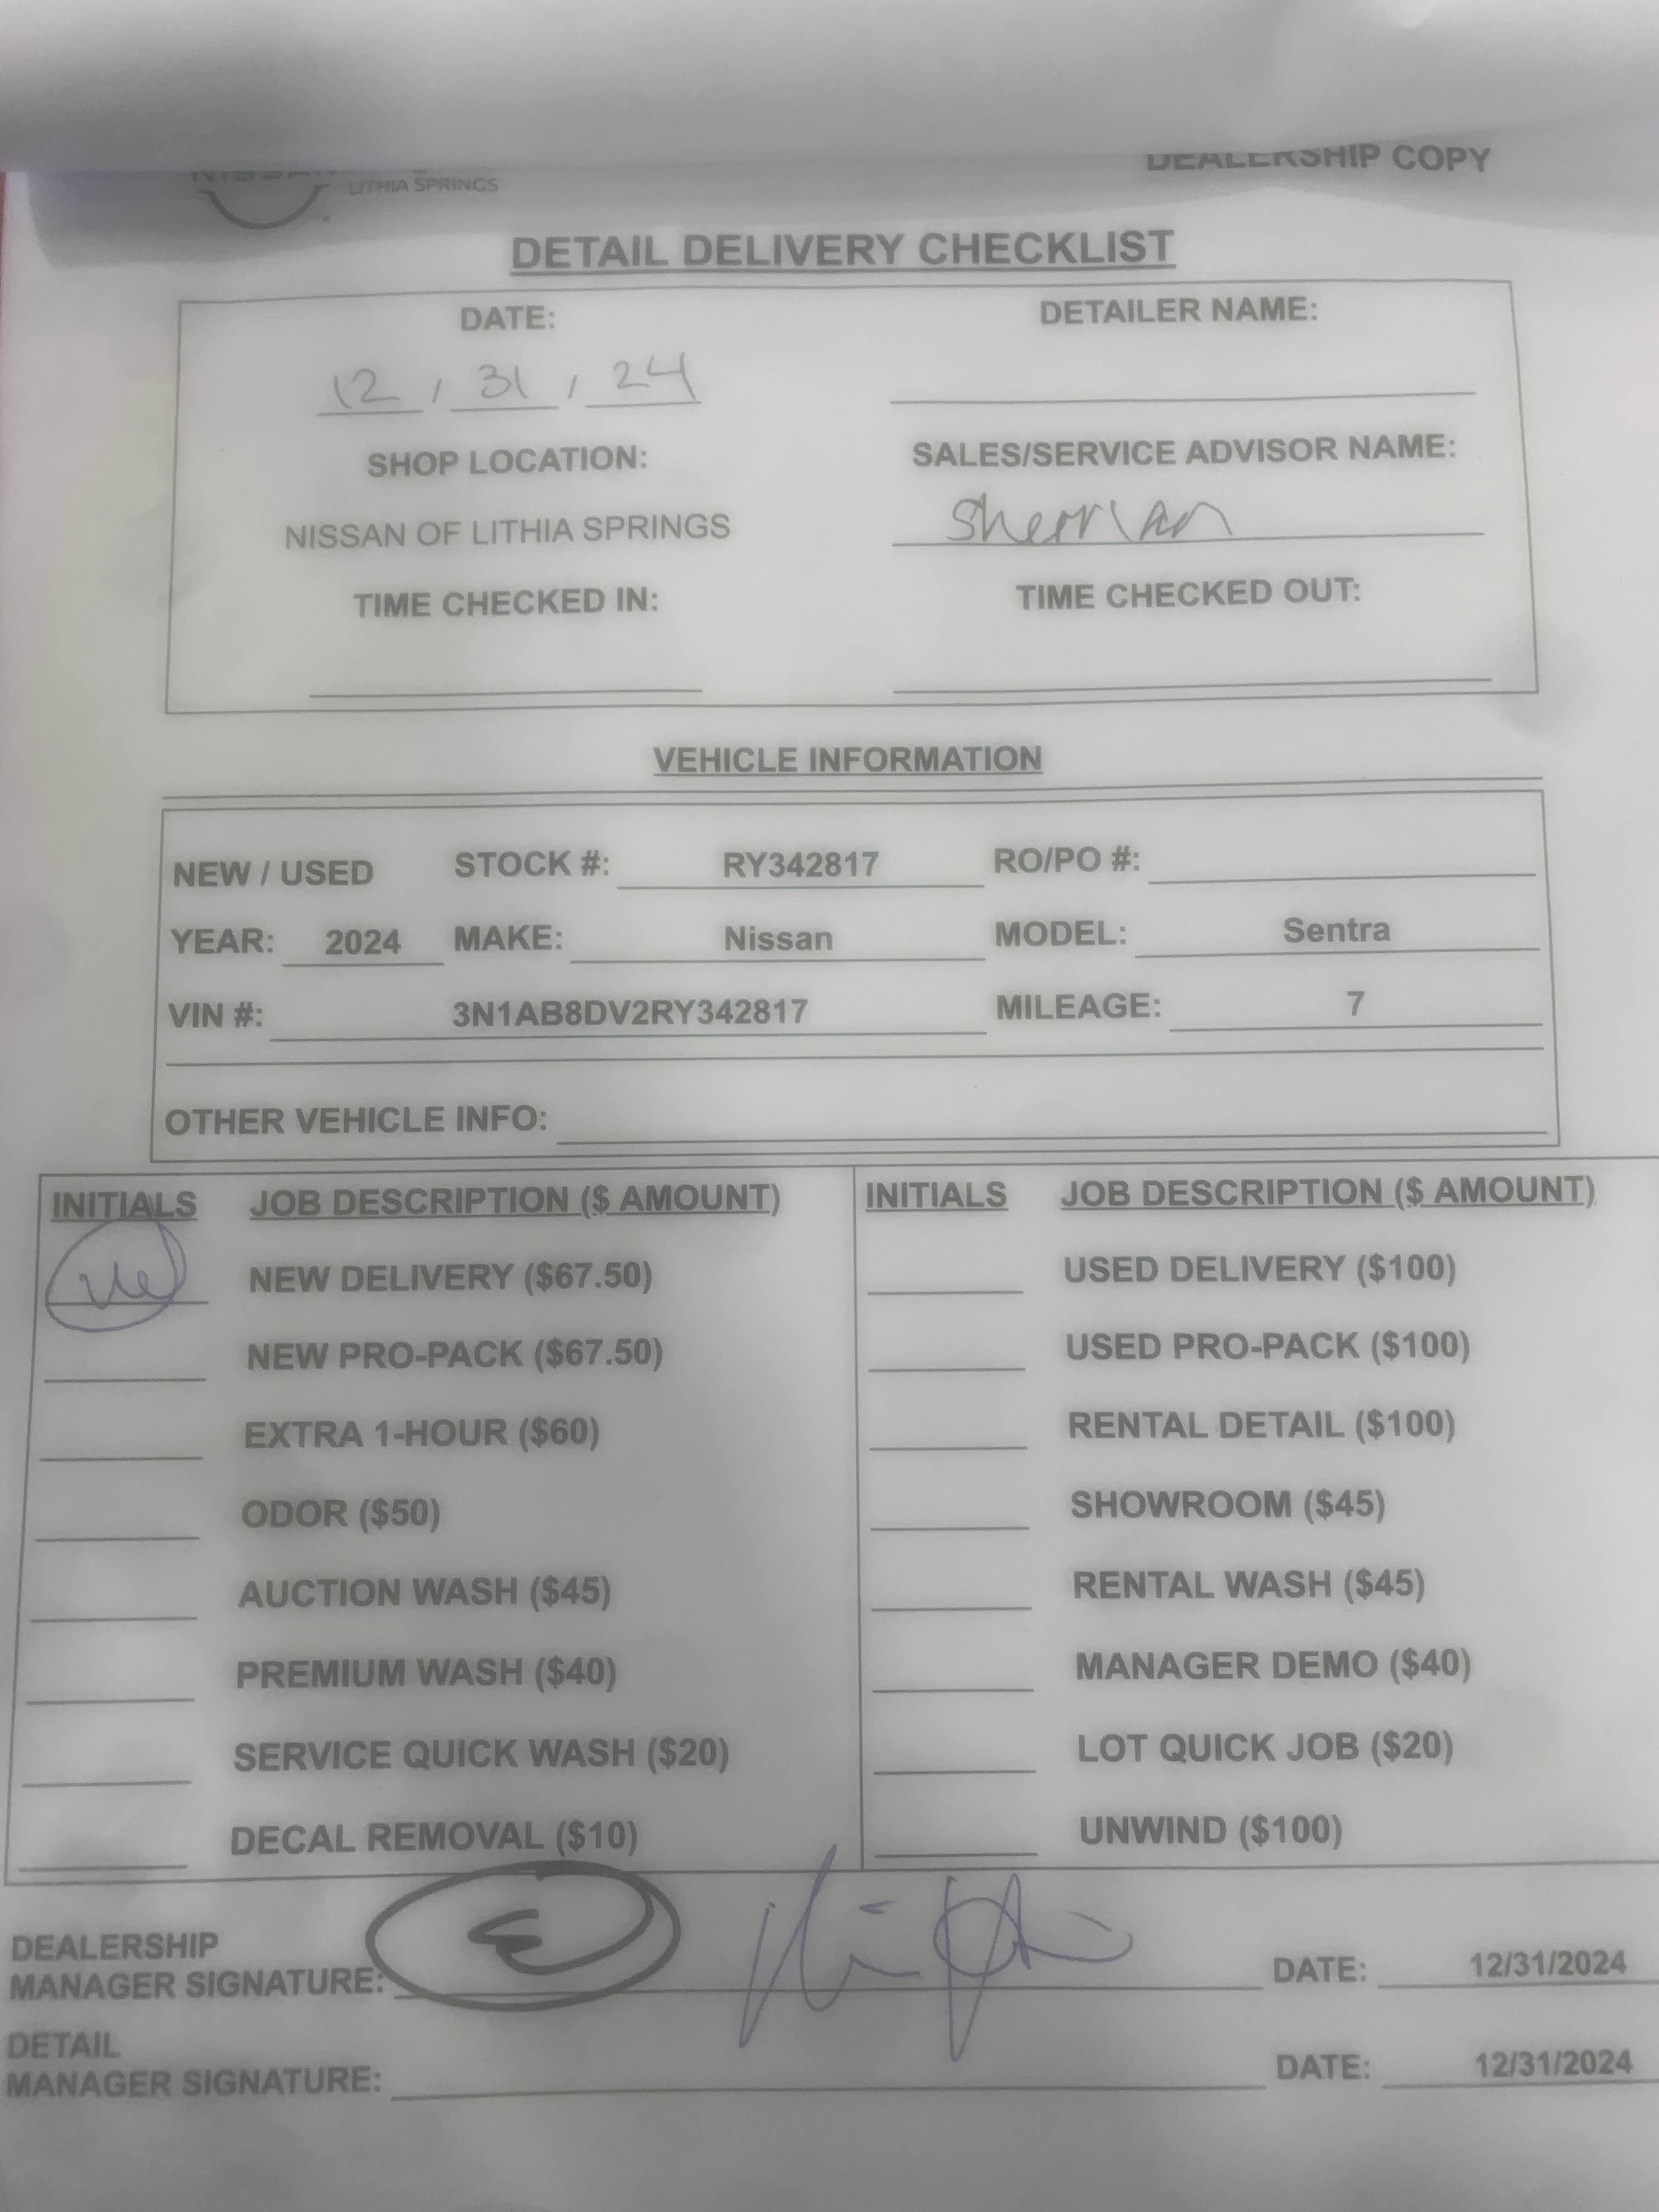 NISSAN
LITHIA SPRINGS
DEALERSHIP COPY
DETAIL DELIVERY CHECKLIST
DATE:
DETAILER NAME:
12 / 31 / 24
SHOP LOCATION:
SALES/SERVICE ADVISOR NAME:
NISSAN OF LITHIA SPRINGS
TIME CHECKED IN:
TIME CHECKED OUT:
VEHICLE INFORMATION
NEW / USED STOCK #: RY342817 RO/PO #:
YEAR: 2024 MAKE: Nissan MODEL: Sentra
VIN #: 3N1AB8DV2RY342817 MILEAGE: 7
OTHER VEHICLE INFO:
INITIALS JOB DESCRIPTION ($ AMOUNT)
NEW DELIVERY ($67.50)
NEW PRO-PACK ($67.50)
EXTRA 1-HOUR ($60)
ODOR ($50)
AUCTION WASH ($45)
PREMIUM WASH ($40)
SERVICE QUICK WASH ($20)
DECAL REMOVAL ($10)
INITIALS JOB DESCRIPTION ($ AMOUNT)
USED DELIVERY ($100)
USED PRO-PACK ($100)
RENTAL DETAIL ($100)
SHOWROOM ($45)
RENTAL WASH ($45)
MANAGER DEMO ($40)
LOT QUICK JOB ($20)
UNWIND ($100)
DEALERSHIP
MANAGER SIGNATURE: DATE: 12/31/2024
DETAIL
MANAGER SIGNATURE: DATE: 12/31/2024